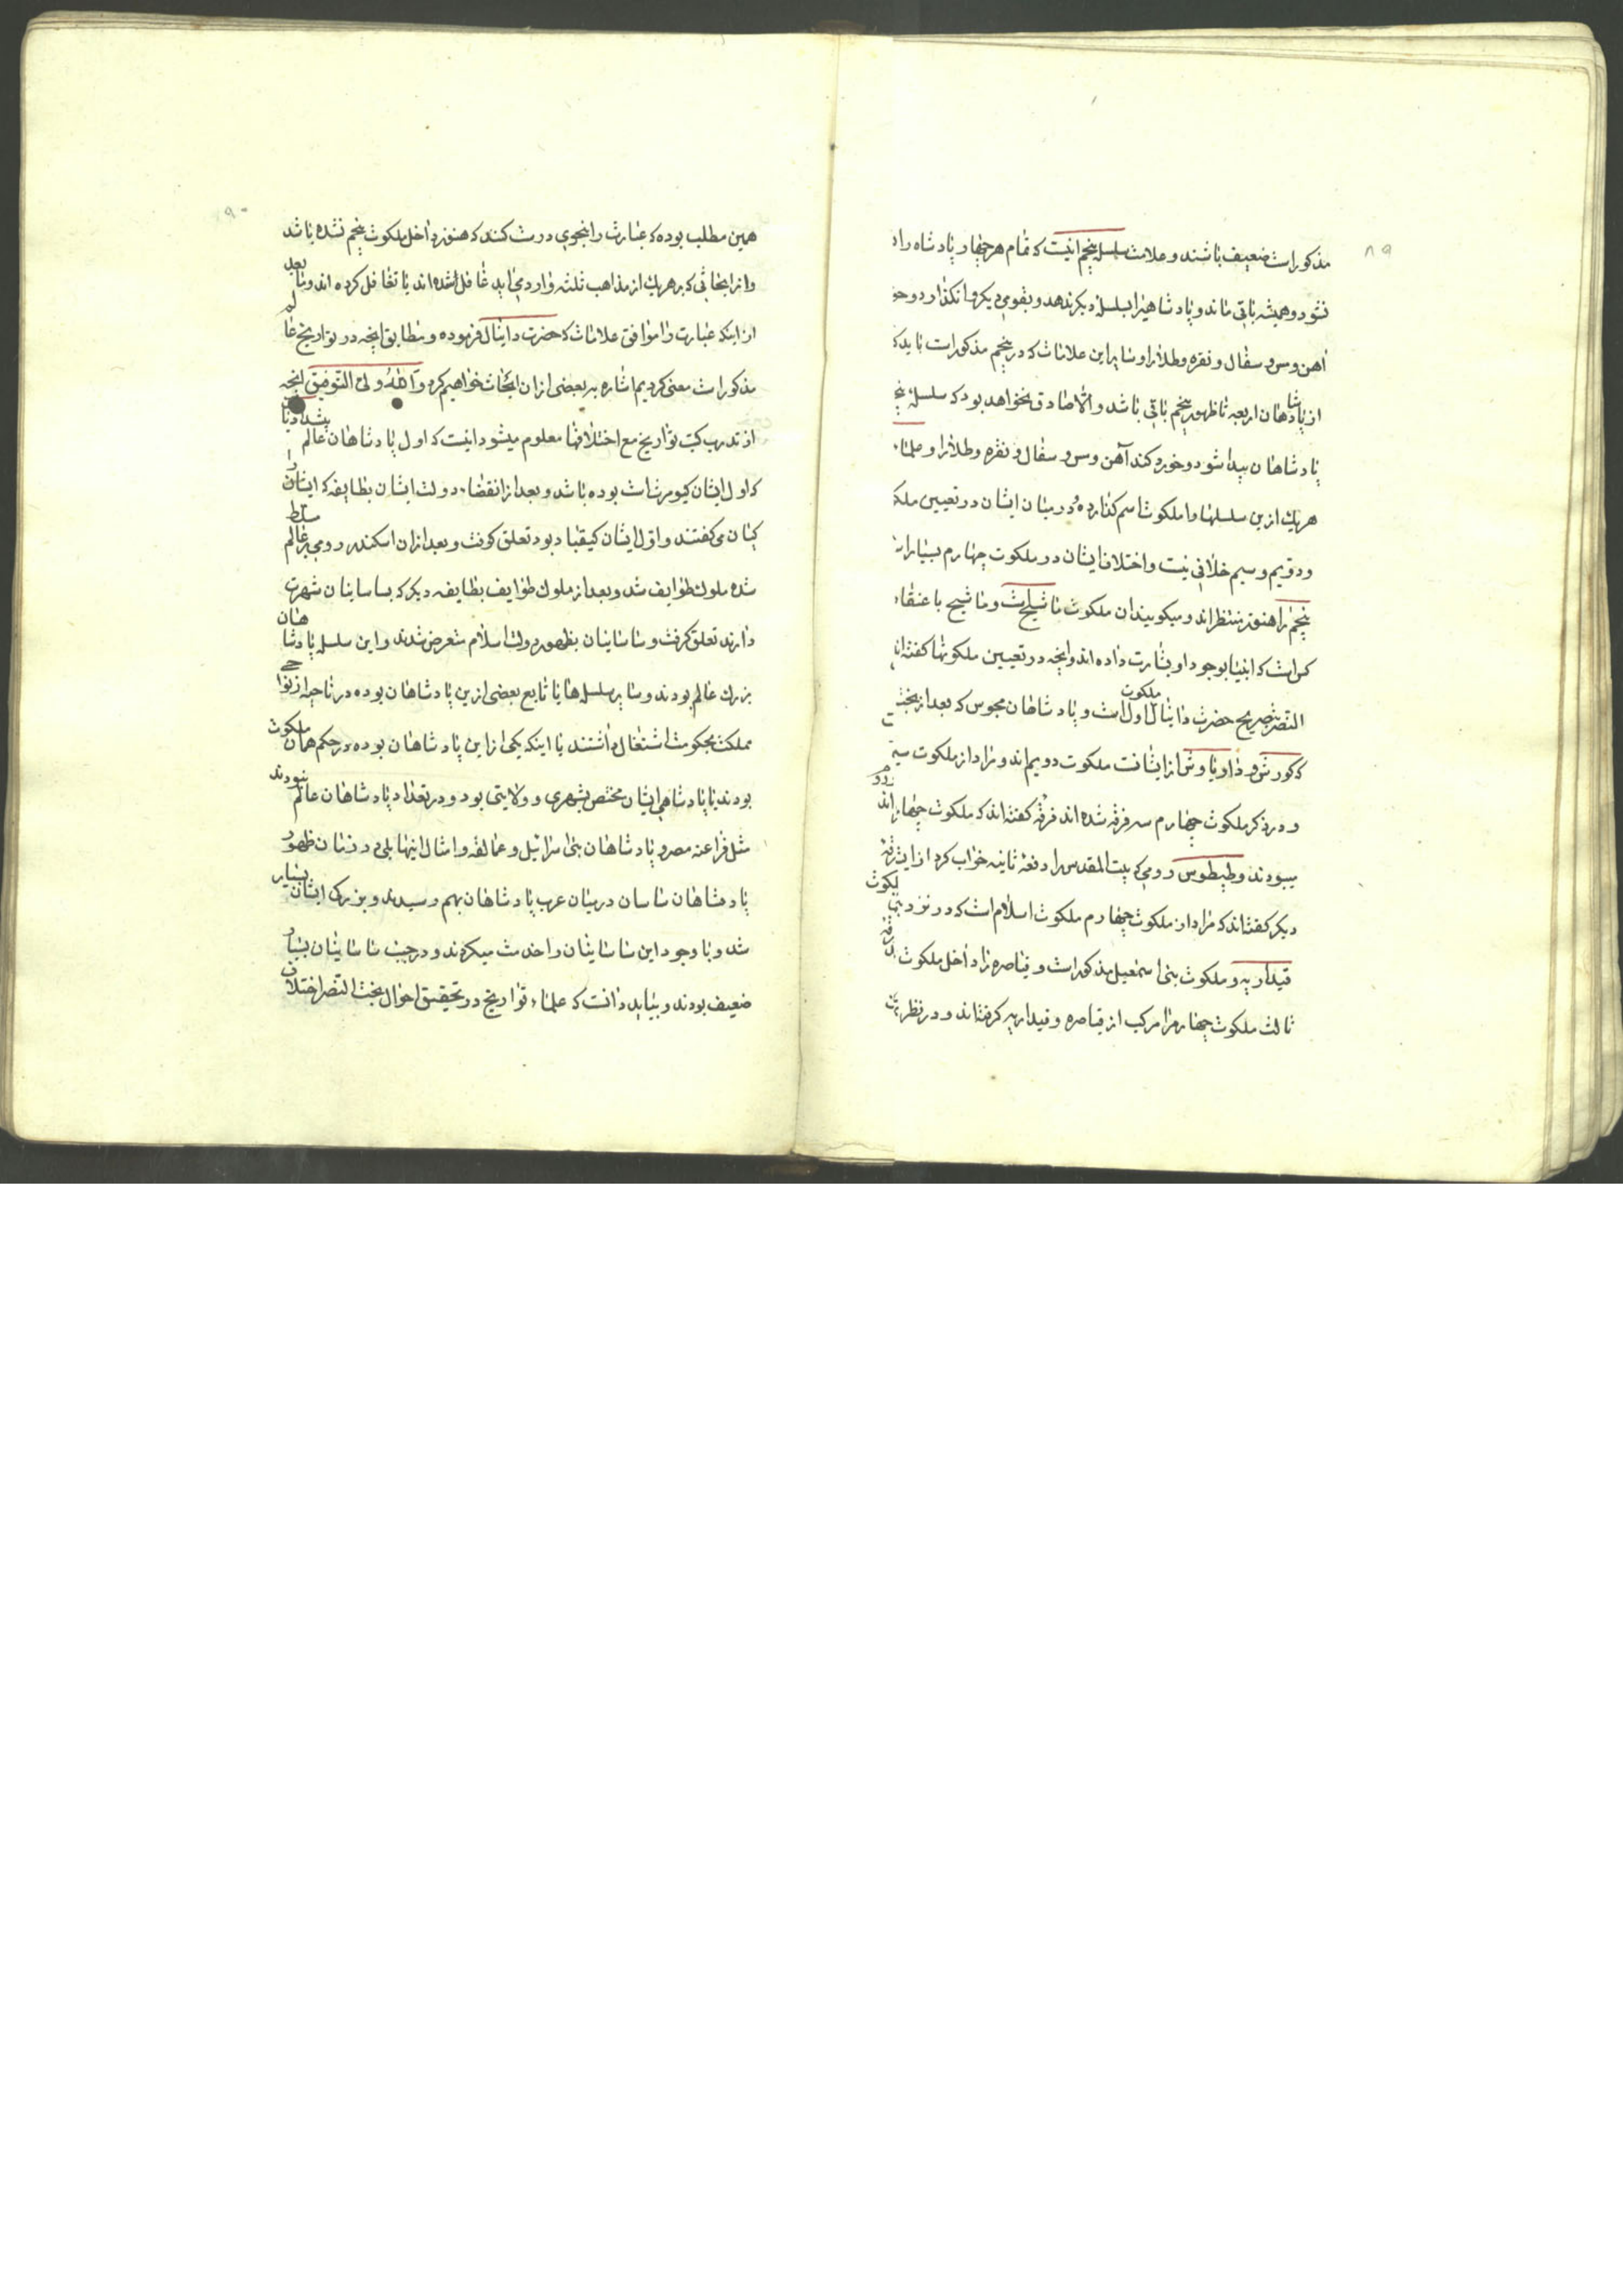 ۸۹
مذکور است ضعیف باشند و علامت سلسله پنجم اینست که تمام هر چهار پادشاه را
نشود و همیشه باقی ماند و پادشاهیرا بسلسله دیگر ندهد و بقومی دیگر وانگذارد و
آهن و مس و سفال و نقره و طلا را و سایر این علامات که در پنجم مذکور است باید که
از پادشاهان اربعه تا ظهور پنجم باقی باشد و الا صادق نخواهد بود که سلسله
پادشاهان پیدا شود و خورد کند آهن و مس و سفال و نقره و طلا را و علماء
هر یک ازین سلسلها را ملکوت اسم گذارده و در میان ایشان در تعیین
و دویم و سیم خلافی نیست و اختلاف ایشان در ملکوت چهارم بسیار است
پنجم را هنوز منتظراند و میگویند ان ملکوت ماشیح است و ماشیح باعتقاد
کسی است که انبیا بوجود او بشارت داده اند و انچه در تعیین ملکوتها گفته اند
النصر بتصریح حضرت دانیال ملکوت اول است و پادشاهان مجوس که بعد از بخت
که کورش و داریاوش از ایشانست ملکوت دویم اند و مراد از ملکوت
و در ذکر ملکوت چهارم سه فرقه شده اند فرقه گفته اند که ملکوت چهارم
میبودند و طیطوس رومی که بیت المقدس را دفعه ثانیه خراب کرد از ایشان
دیگر گفته اند که مراد از ملکوت چهارم ملکوت اسلام است که در نزد بنی
قیداریه و ملکوت بنی اسمعیل مذکور است و قیاصره را داخل ملکوت
ثالث ملکوت چهارم را مرکب از قیاصره و قیداریه گرفته اند و در نظر
۹۰
همین مطلب بوده که عبارت را بنحوی درست کنند که هنوز داخل ملکوت پنجم نشده باشد
و از ابحاثی که بر هر یک از مذاهب ثلثه وارد می اید غافل شده اند یا تغافل کرده اند و ما بعد
از اینکه عبارت را موافق علامات که حضرت دانیال فرموده و مطابق انچه در تواریخ عالم
مذکور است معنی کردیم اشاره به بعضی از ان ابحاث خواهیم کرد و الله ولی التوفیق انچه
از تدرب کتب تواریخ مع اختلافها معلوم میشود اینست که اول پادشاهان عالم پیشدادیان
که اول ایشان کیومرث است بوده باشد و بعد از انقضاء دولت ایشان بطایفه که ایشان را
کیان می گفتند و اول ایشان کیقباد بود تعلق گرفت و بعد از ان اسکندر رومی بر عالم مسلط
شده ملوک طوایف شد و بعد از ملوک طوایف بطایفه دیگر که بساسانیان شهرت
دارند تعلق گرفت و ساسانیان بظهور دولت اسلام متعرض شدند و این سلسله پادشاهان
بزرگ عالم بودند و سایر سلسله ها یا تابع بعضی ازین پادشاهان بوده در ناحیه از نواحی
مملکت بحکومت اشتغال داشتند یا اینکه یکی از این پادشاهان بوده در حکم همان ملکوت
بودند یا پادشاهی ایشان مختص بشهری و ولایتی بود و در تعداد پادشاهان عالم نبودند
مثل فراعنه مصر و پادشاهان بنی اسرائیل و عمالقه و امثال اینها بلی در زمان ظهور
پادشاهان ساسان در میان عرب پادشاهان بهم رسیدند و بزرگی ایشان بسیار
شد و با وجود این ساسانیان را خدمت میکردند و در جنب ساسانیان بسیار
ضعیف بودند و بباید دانست که علماء تواریخ در تحقیق احوال بخت النصر اختلاف